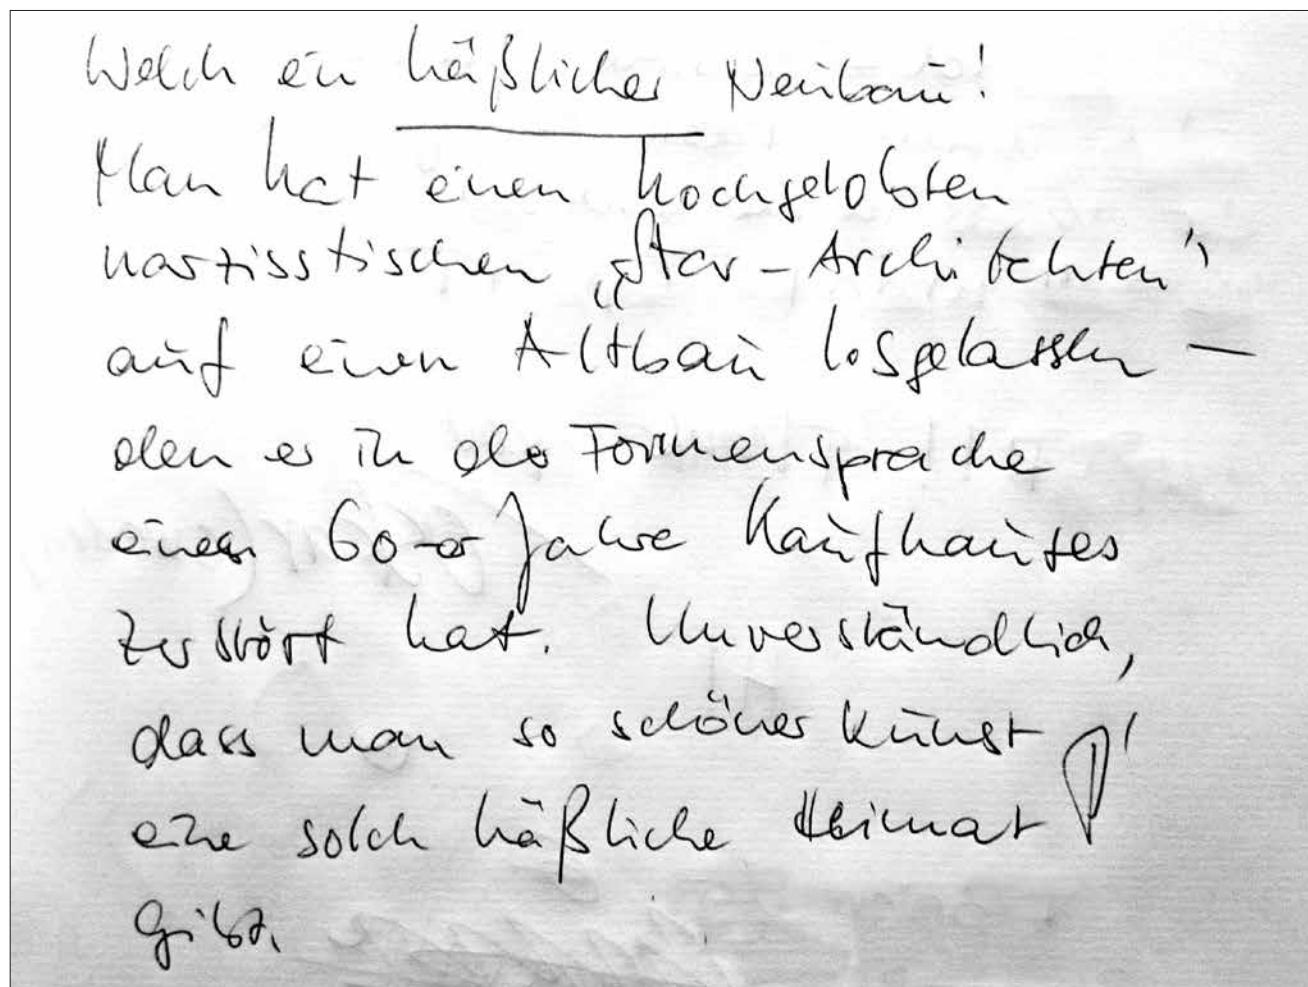 Welch ein häßlicher Neubau!
Man hat einen hochgelobten
narzisstischen „Star-Architekten"
auf einen Altbau losgelassen —
den er in der Formensprache
eines 60-er Jahre Kaufhauses
zerstört hat. Unverständlich,
dass man so schöner Kunst
eine solch häßliche Heimat
gibt.